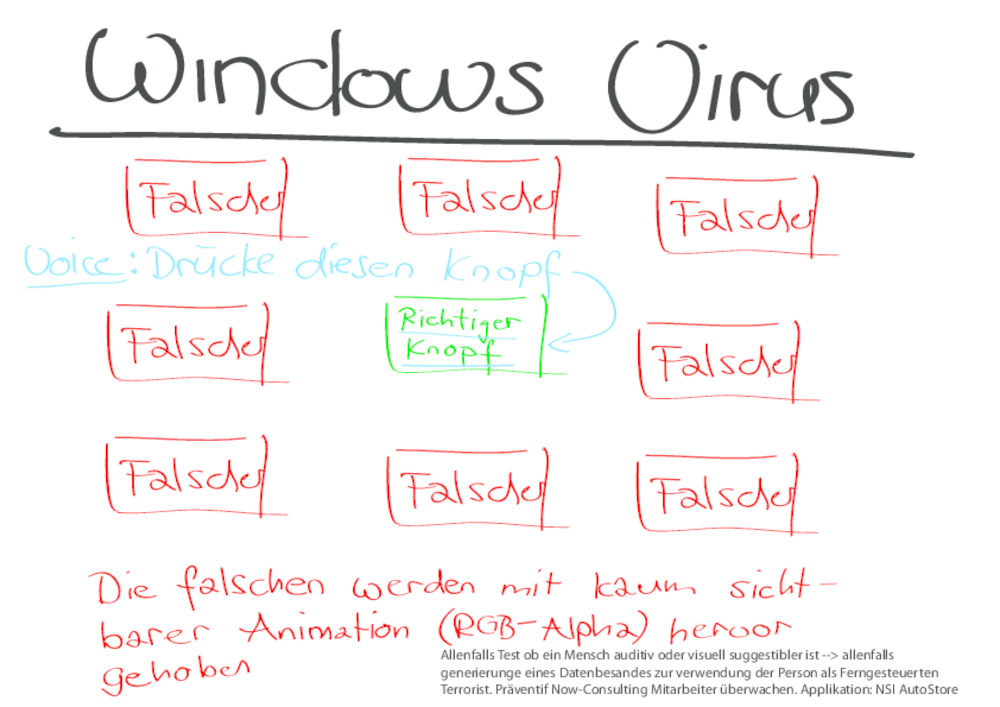 Windows Virus
Falscher Falscher Falscher
Voice: Drücke diesen Knopf
Falscher Richtiger Falscher
Knopf
Falscher Falscher Falscher
Die falschen werden mit kaum sicht-
barer Animation (RGB-Alpha) hervor
gehoben
Allenfalls Test ob ein Mensch auditiv oder visuell suggestibler ist --> allenfalls
generierunge eines Datenbesandes zur verwendung der Person als Ferngesteuerten
Terrorist. Präventif Now-Consulting Mitarbeiter überwachen. Applikation: NSI AutoStore